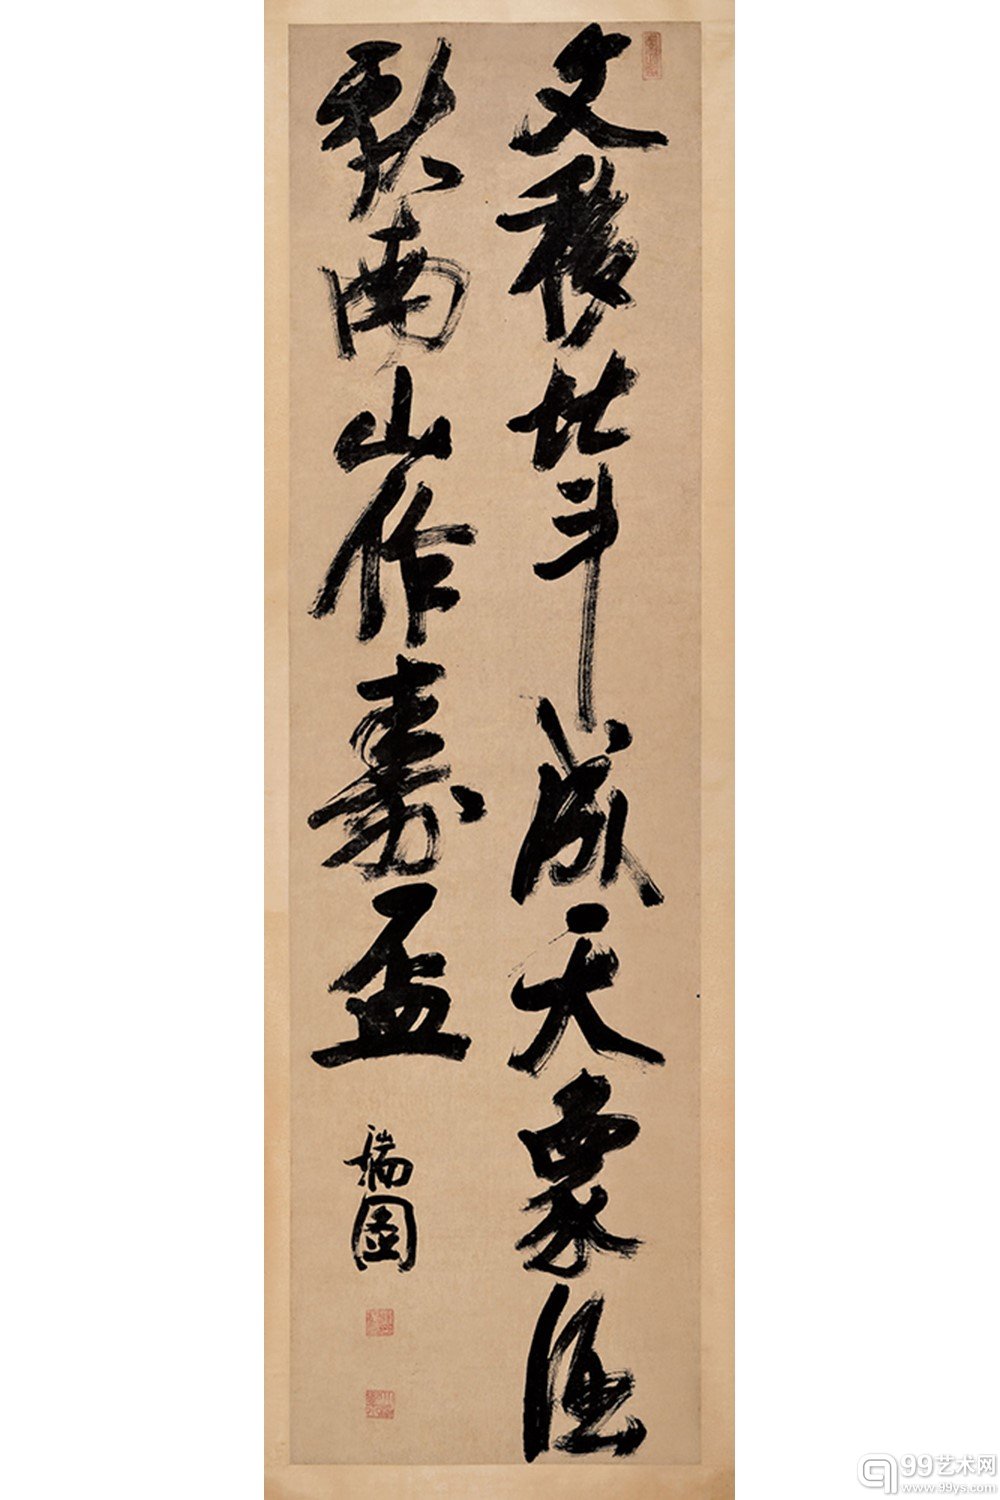 文移北斗成天象酒
献南山作壽盃
瑞圖
99艺术网
www.99ys.com